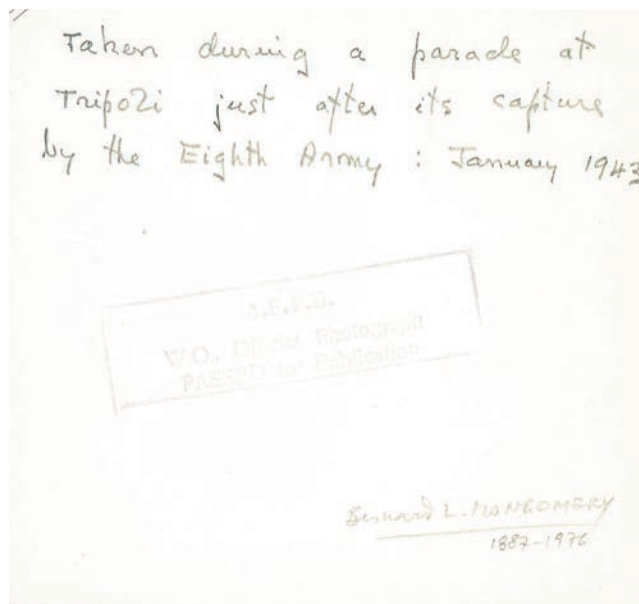 Taken during a parade at
Tripoli just after its capture
by the Eighth Army : January 1943
A.F.P.U.
W.O., Official Photograph
PASSED for Publication
Bernard L. MONGOMERY
1887-1976